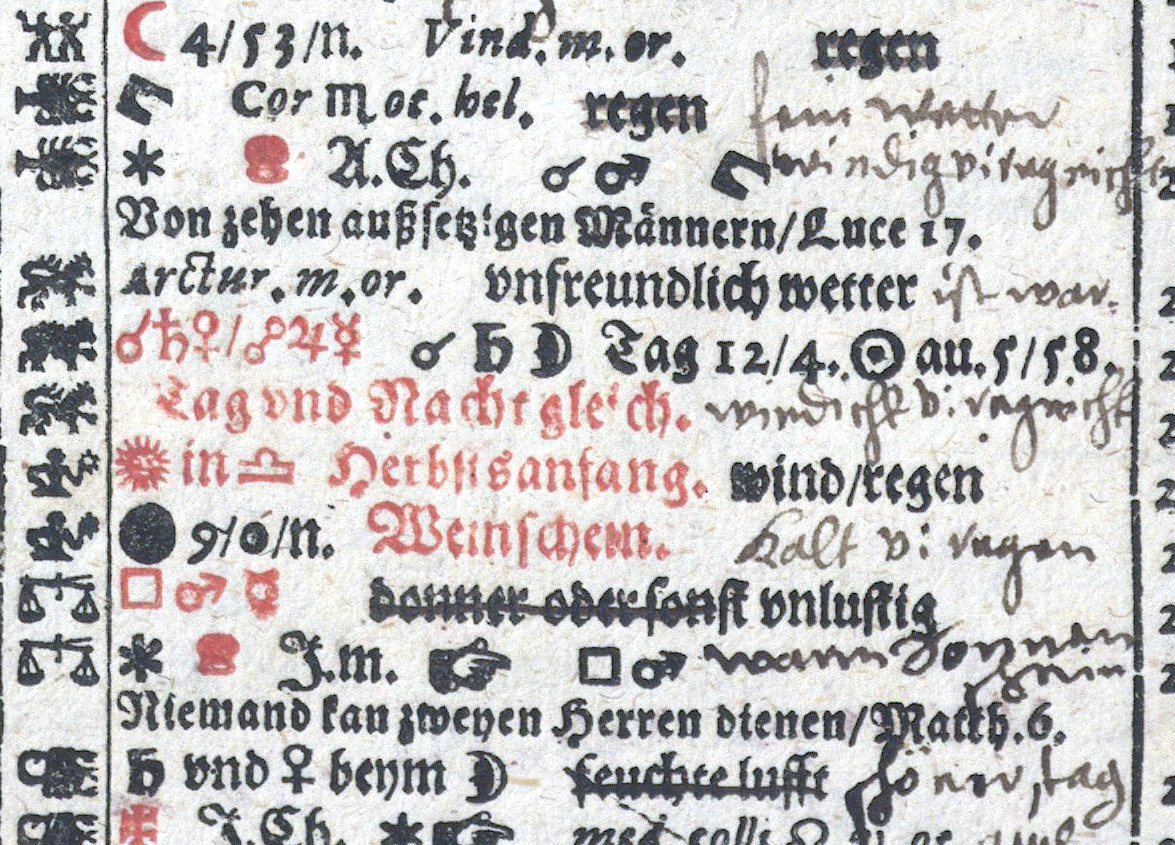 ☾ 4/53/N. Vind. m. or. regen
Cor ♏ oc. hel. regen fein Wetter
✶ A.Ch. ☌ ♂ windig vi regnicht
Von zehen außsetzigen Männern/Luce 17.
Arctur. m. or. vnfreundlich wetter ist war.
☌♄♀/☍♃☿ ☌ ♄ ☽ Tag 12/4. ☉ au. 5/58.
Tag vnd Nacht gleich. windicht vi regnicht
☀ in ♎ Herbstsanfang. wind/regen
● 9/0/N. Weinschein. Kalt vi regen
□ ♂ ☿ donner oder sonst vnlustig
✶ J.m. ☞ □ ♂ warm Sonnen
schein
Niemand kan zweyen Herren dienen/Matth. 6.
♄ vnd ♀ beym ☽ feuchte lufft schöner tag
J.Ch. ✶ ☞